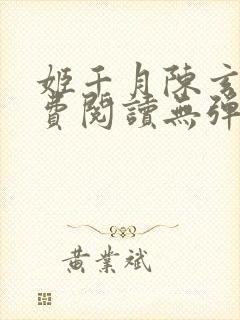 姬千月陳玄
費閱讀無彈
黃業斌